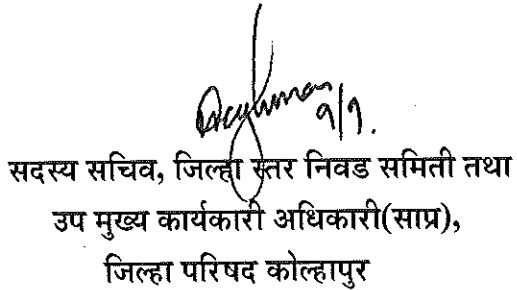 ९/९.
सदस्य सचिव, जिल्हा स्तर निवड समिती तथा
उप मुख्य कार्यकारी अधिकारी(साप्र),
जिल्हा परिषद कोल्हापुर